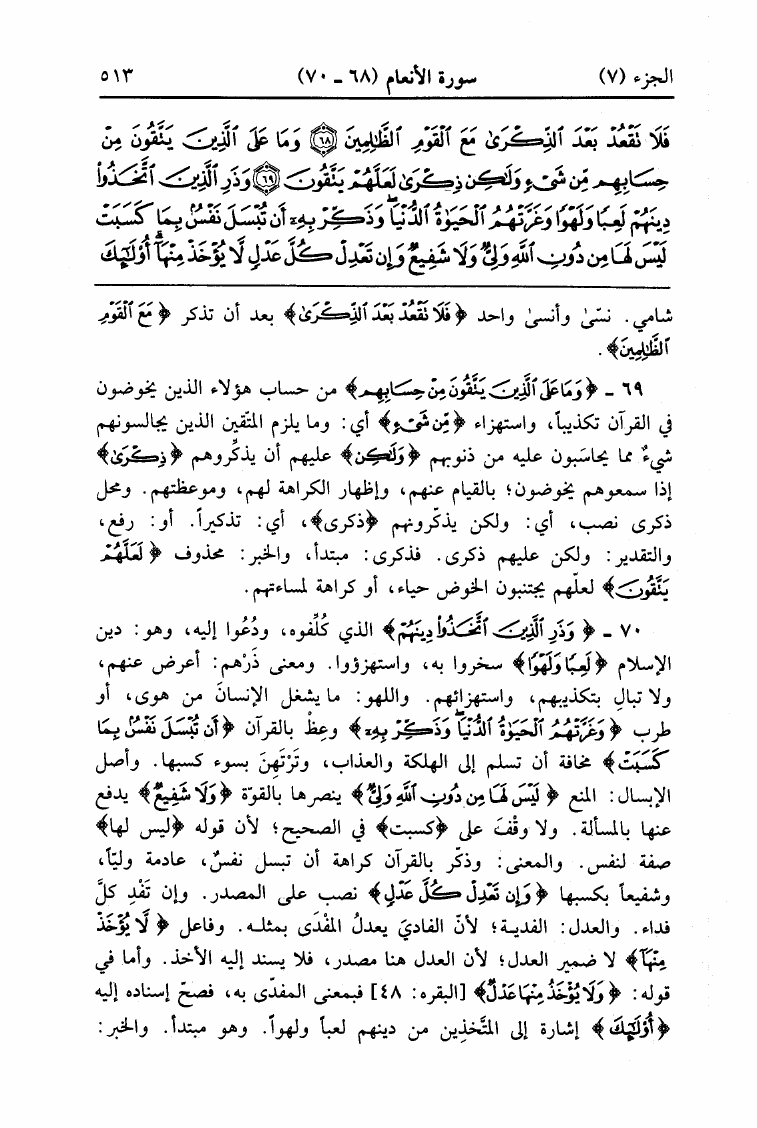 الجزء (٧) سورة الأنعام (٦٨ ـ ٧٠) ٥١٣
فَلَا نَقْعُدْ بَعْدَ ٱلذِّكْرَىٰ مَعَ ٱلْقَوْمِ ٱلظَّٰلِمِينَ ۝٦٨ وَمَا عَلَى ٱلَّذِينَ يَتَّقُونَ مِنْ
حِسَابِهِم مِّن شَىْءٍ وَلَٰكِن ذِكْرَىٰ لَعَلَّهُمْ يَتَّقُونَ ۝٦٩ وَذَرِ ٱلَّذِينَ ٱتَّخَذُوا۟
دِينَهُمْ لَعِبًا وَلَهْوًا وَغَرَّتْهُمُ ٱلْحَيَوٰةُ ٱلدُّنْيَا ۚ وَذَكِّرْ بِهِۦٓ أَن تُبْسَلَ نَفْسٌۢ بِمَا كَسَبَتْ
لَيْسَ لَهَا مِن دُونِ ٱللَّهِ وَلِىٌّ وَلَا شَفِيعٌ وَإِن تَعْدِلْ كُلَّ عَدْلٍ لَّا يُؤْخَذْ مِنْهَآ ۗ أُو۟لَٰٓئِكَ
شامي. نسّىٰ وأنسىٰ واحد ﴿فَلَا نَقْعُدْ بَعْدَ ٱلذِّكْرَىٰ﴾ بعد أن تذكر ﴿مَعَ ٱلْقَوْمِ
ٱلظَّٰلِمِينَ﴾.
٦٩ ـ ﴿وَمَا عَلَى ٱلَّذِينَ يَتَّقُونَ مِنْ حِسَابِهِم﴾ من حساب هؤلاء الذين يخوضون
في القرآن تكذيباً، واستهزاء ﴿مِّن شَىْءٍ﴾ أي: وما يلزم المتّقين الذين يجالسونهم
شيءٌ مما يحاسَبون عليه من ذنوبهم ﴿وَلَٰكِن﴾ عليهم أن يذكِّروهم ﴿ذِكْرَىٰ﴾
إذا سمعوهم يخوضون؛ بالقيام عنهم، وإظهار الكراهة لهم، وموعظتهم. ومحل
ذكرى نصب، أي: ولكن يذكّرونهم ﴿ذكرى﴾، أي: تذكيراً. أو: رفع،
والتقدير: ولكن عليهم ذكرى. فذكرى: مبتدأ، والخبر: محذوف ﴿لَعَلَّهُمْ
يَتَّقُونَ﴾ لعلّهم يجتنبون الخوض حياء، أو كراهة لمساءتهم.
٧٠ ـ ﴿وَذَرِ ٱلَّذِينَ ٱتَّخَذُوا۟ دِينَهُمْ﴾ الذي كُلِّفوه، ودُعُوا إليه، وهو: دين
الإسلام ﴿لَعِبًا وَلَهْوًا﴾ سخروا به، واستهزؤوا. ومعنى ذَرْهم: أعرض عنهم،
ولا تبالِ بتكذيبهم، واستهزائهم. واللهو: ما يشغل الإنسانَ من هوى، أو
طرب ﴿وَغَرَّتْهُمُ ٱلْحَيَوٰةُ ٱلدُّنْيَا ۚ وَذَكِّرْ بِهِۦٓ﴾ وعِظْ بالقرآن ﴿أَن تُبْسَلَ نَفْسٌۢ بِمَا
كَسَبَتْ﴾ مخافة أن تسلم إلى الهلكة والعذاب، وتَرْتَهِنَ بسوء كسبها. وأصل
الإبسال: المنع ﴿لَيْسَ لَهَا مِن دُونِ ٱللَّهِ وَلِىٌّ﴾ ينصرها بالقوّة ﴿وَلَا شَفِيعٌ﴾ يدفع
عنها بالمسألة. ولا وقْفَ على ﴿كسبت﴾ في الصحيح؛ لأن قوله ﴿ليس لها﴾
صفة لنفس. والمعنى: وذكّر بالقرآن كراهة أن تبسل نفسٌ، عادمة وليّاً،
وشفيعاً بكسبها ﴿وَإِن تَعْدِلْ كُلَّ عَدْلٍ﴾ نصب على المصدر. وإن تَفْدِ كلَّ
فداء. والعدل: الفدية؛ لأنّ الفاديَ يعدلُ المفْدَى بمثله. وفاعل ﴿لَّا يُؤْخَذْ
مِنْهَآ﴾ لا ضمير العدل؛ لأن العدل هنا مصدر، فلا يسند إليه الأخذ. وأما في
قوله: ﴿وَلَا يُؤْخَذُ مِنْهَا عَدْلٌ﴾ [البقره: ٤٨] فبمعنى المفدّى به، فصحّ إسناده إليه
﴿أُو۟لَٰٓئِكَ﴾ إشارة إلى المتَّخذين من دينهم لعباً ولهواً. وهو مبتدأ. والخبر: